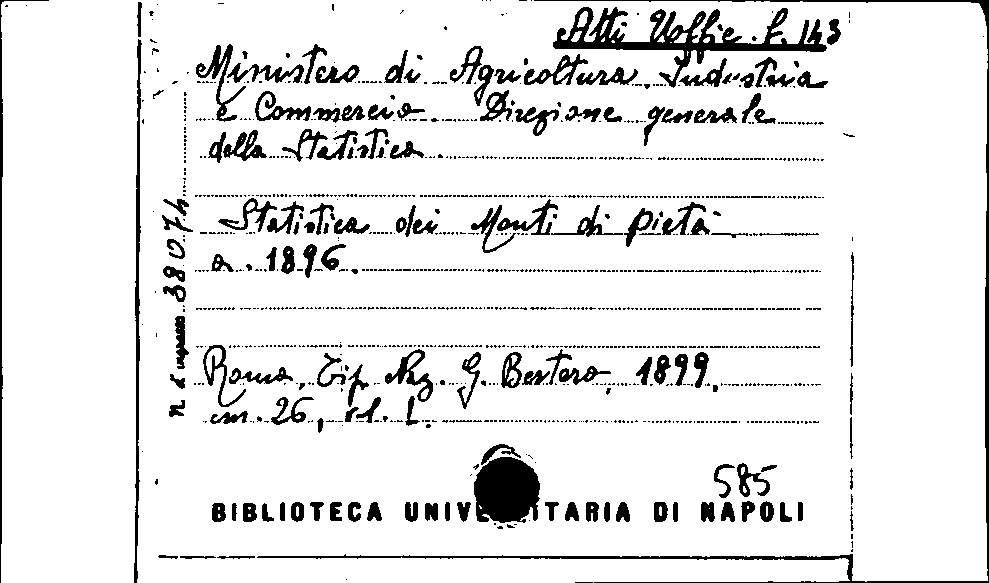 Atti Uffic. f. 143
Ministero di Agricoltura, Industria
e Commercio. Direzione generale
della Statistica.
Statistica dei Monti di pietà
a. 1896.
Roma, Tip. Naz. G. Bertero, 1899.
cm. 26,
n. d'ingresso 38074
585
BIBLIOTECA UNIVERSITARIA DI NAPOLI